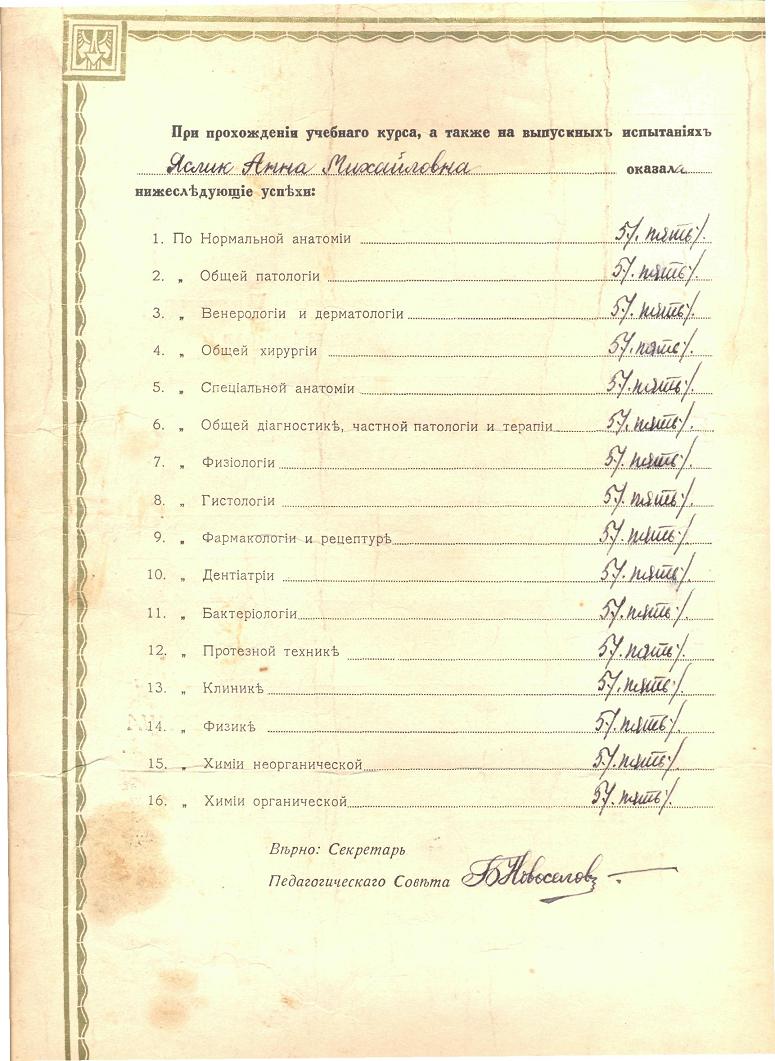 При прохожденіи учебнаго курса, а также на выпускныхъ испытаніяхъ
Яслик Анна Михайловна оказала
нижеслѣдующіе успѣхи:
1. По Нормальной анатоміи 5/. пять./.
2. „ Общей патологіи 5/. пять./.
3. „ Венерологіи и дерматологіи 5/. пять./.
4. „ Общей хирургіи 5/. пять./.
5. „ Спеціальной анатоміи 5/. пять./.
6. „ Общей діагностикѣ, частной патологіи и терапіи 5/. пять./.
7. „ Физіологіи 5/. пять./.
8. „ Гистологіи 5/. пять./.
9. „ Фармакологіи и рецептурѣ 5/. пять./.
10. „ Дентіатріи 5/. пять./.
11. „ Бактеріологіи 5/. пять./.
12. „ Протезной техникѣ 5/. пять./.
13. „ Клиникѣ 5/. пять./.
14. „ Физикѣ 5/. пять./.
15. „ Химіи неорганической 5/. пять./.
16. „ Химіи органической 5/. пять./.
Вѣрно: Секретарь
Педагогическаго Совѣта Б Новоселов